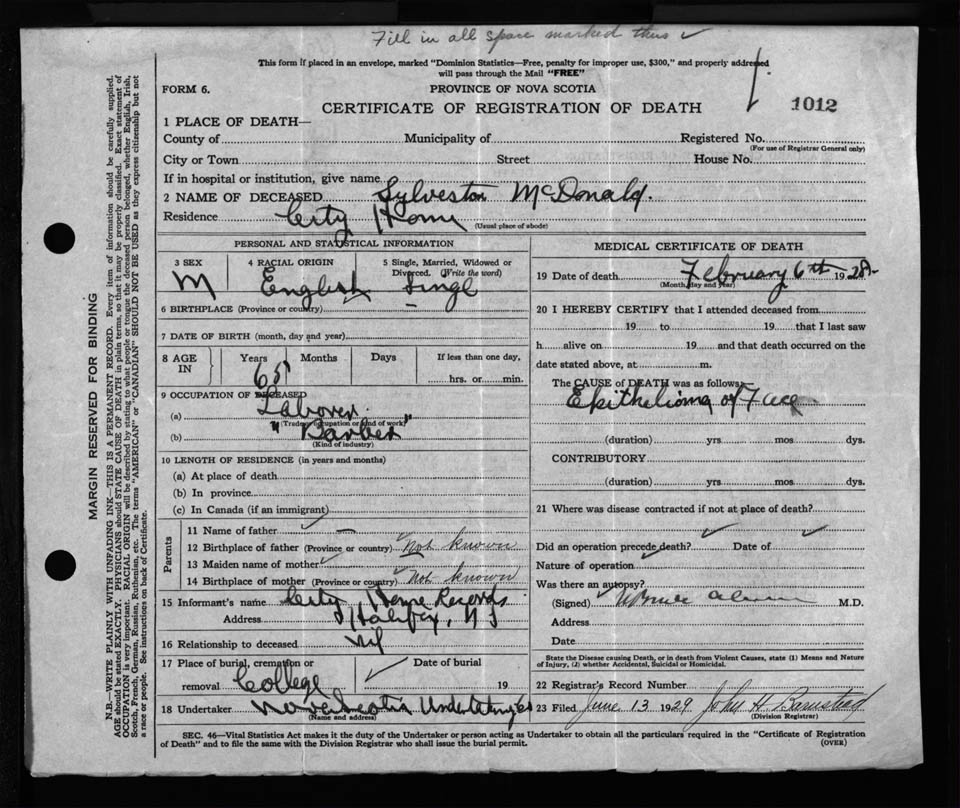 Fill in all space marked thus ✓
This form if placed in an envelope, marked "Dominion Statistics—Free, penalty for improper use, $300," and properly addressed
will pass through the Mail "FREE"
FORM 6.
PROVINCE OF NOVA SCOTIA
CERTIFICATE OF REGISTRATION OF DEATH
1012
1 PLACE OF DEATH—
County of Municipality of Registered No.
(For use of Registrar General only)
City or Town Street House No.
If in hospital or institution, give name
2 NAME OF DECEASED Sylvester McDonald.
Residence City Home
(Usual place of abode)
PERSONAL AND STATISTICAL INFORMATION
3 SEX 4 RACIAL ORIGIN 5 Single, Married, Widowed or
Divorced. (Write the word)
M English Singl
6 BIRTHPLACE (Province or country) —
7 DATE OF BIRTH (month, day and year)
8 AGE IN Years Months Days If less than one day,
65
hrs. or min.
9 OCCUPATION OF DECEASED
(a) Laborer
(Trade, occupation or kind of work)
(b) "Barber"
(Kind of industry)
10 LENGTH OF RESIDENCE (in years and months)
(a) At place of death
(b) In province
(c) In Canada (if an immigrant)
Parents
11 Name of father ✓ —
12 Birthplace of father (Province or country) ✓ Not known
13 Maiden name of mother ✓
14 Birthplace of mother (Province or country) ✓ Not known
15 Informant's name City Home Records
Address Halifax, N S
16 Relationship to deceased Nil
17 Place of burial, cremation or Date of burial
removal College ✓ 19
18 Undertaker Nova Scotia Undertaking Co
(Name and address)
MEDICAL CERTIFICATE OF DEATH
19 Date of death February 6th 1928
(Month, day and year)
20 I HEREBY CERTIFY that I attended deceased from
19 to 19 that I last saw
h alive on 19 and that death occurred on the
date stated above, at m.
The CAUSE of DEATH was as follows:
Epithelioma of Face
(duration) yrs mos dys.
CONTRIBUTORY
(duration) yrs mos dys.
21 Where was disease contracted if not at place of death?
Did an operation precede death? ✓ Date of ✓
Nature of operation ✓
Was there an autopsy?
(Signed) M.D.
Address
Date
State the Disease causing Death, or in death from Violent Causes, state (1) Means and Nature
of Injury, (2) whether Accidental, Suicidal or Homicidal.
22 Registrar's Record Number
23 Filed June 13 1929 John H Barnstead
(Division Registrar)
SEC. 46—Vital Statistics Act makes it the duty of the Undertaker or person acting as Undertaker to obtain all the particulars required in the "Certificate of Registration
of Death" and to file the same with the Division Registrar who shall issue the burial permit.
(OVER)
MARGIN RESERVED FOR BINDING
N.B.—WRITE PLAINLY WITH UNFADING INK—THIS IS A PERMANENT RECORD. Every item of information should be carefully supplied.
AGE should be stated EXACTLY. PHYSICIANS should STATE CAUSE OF DEATH in plain terms, so that it may be properly classified. Exact statement of
OCCUPATION is very important. RACIAL ORIGIN will be described by stating to what people or tongue the deceased person belonged, whether English, Irish,
Scotch, French, German, Russian, Ruthenian, etc. The terms "AMERICAN" or "CANADIAN" SHOULD NOT BE USED as they express citizenship but not
a race or people. See instructions on back of Certificate.